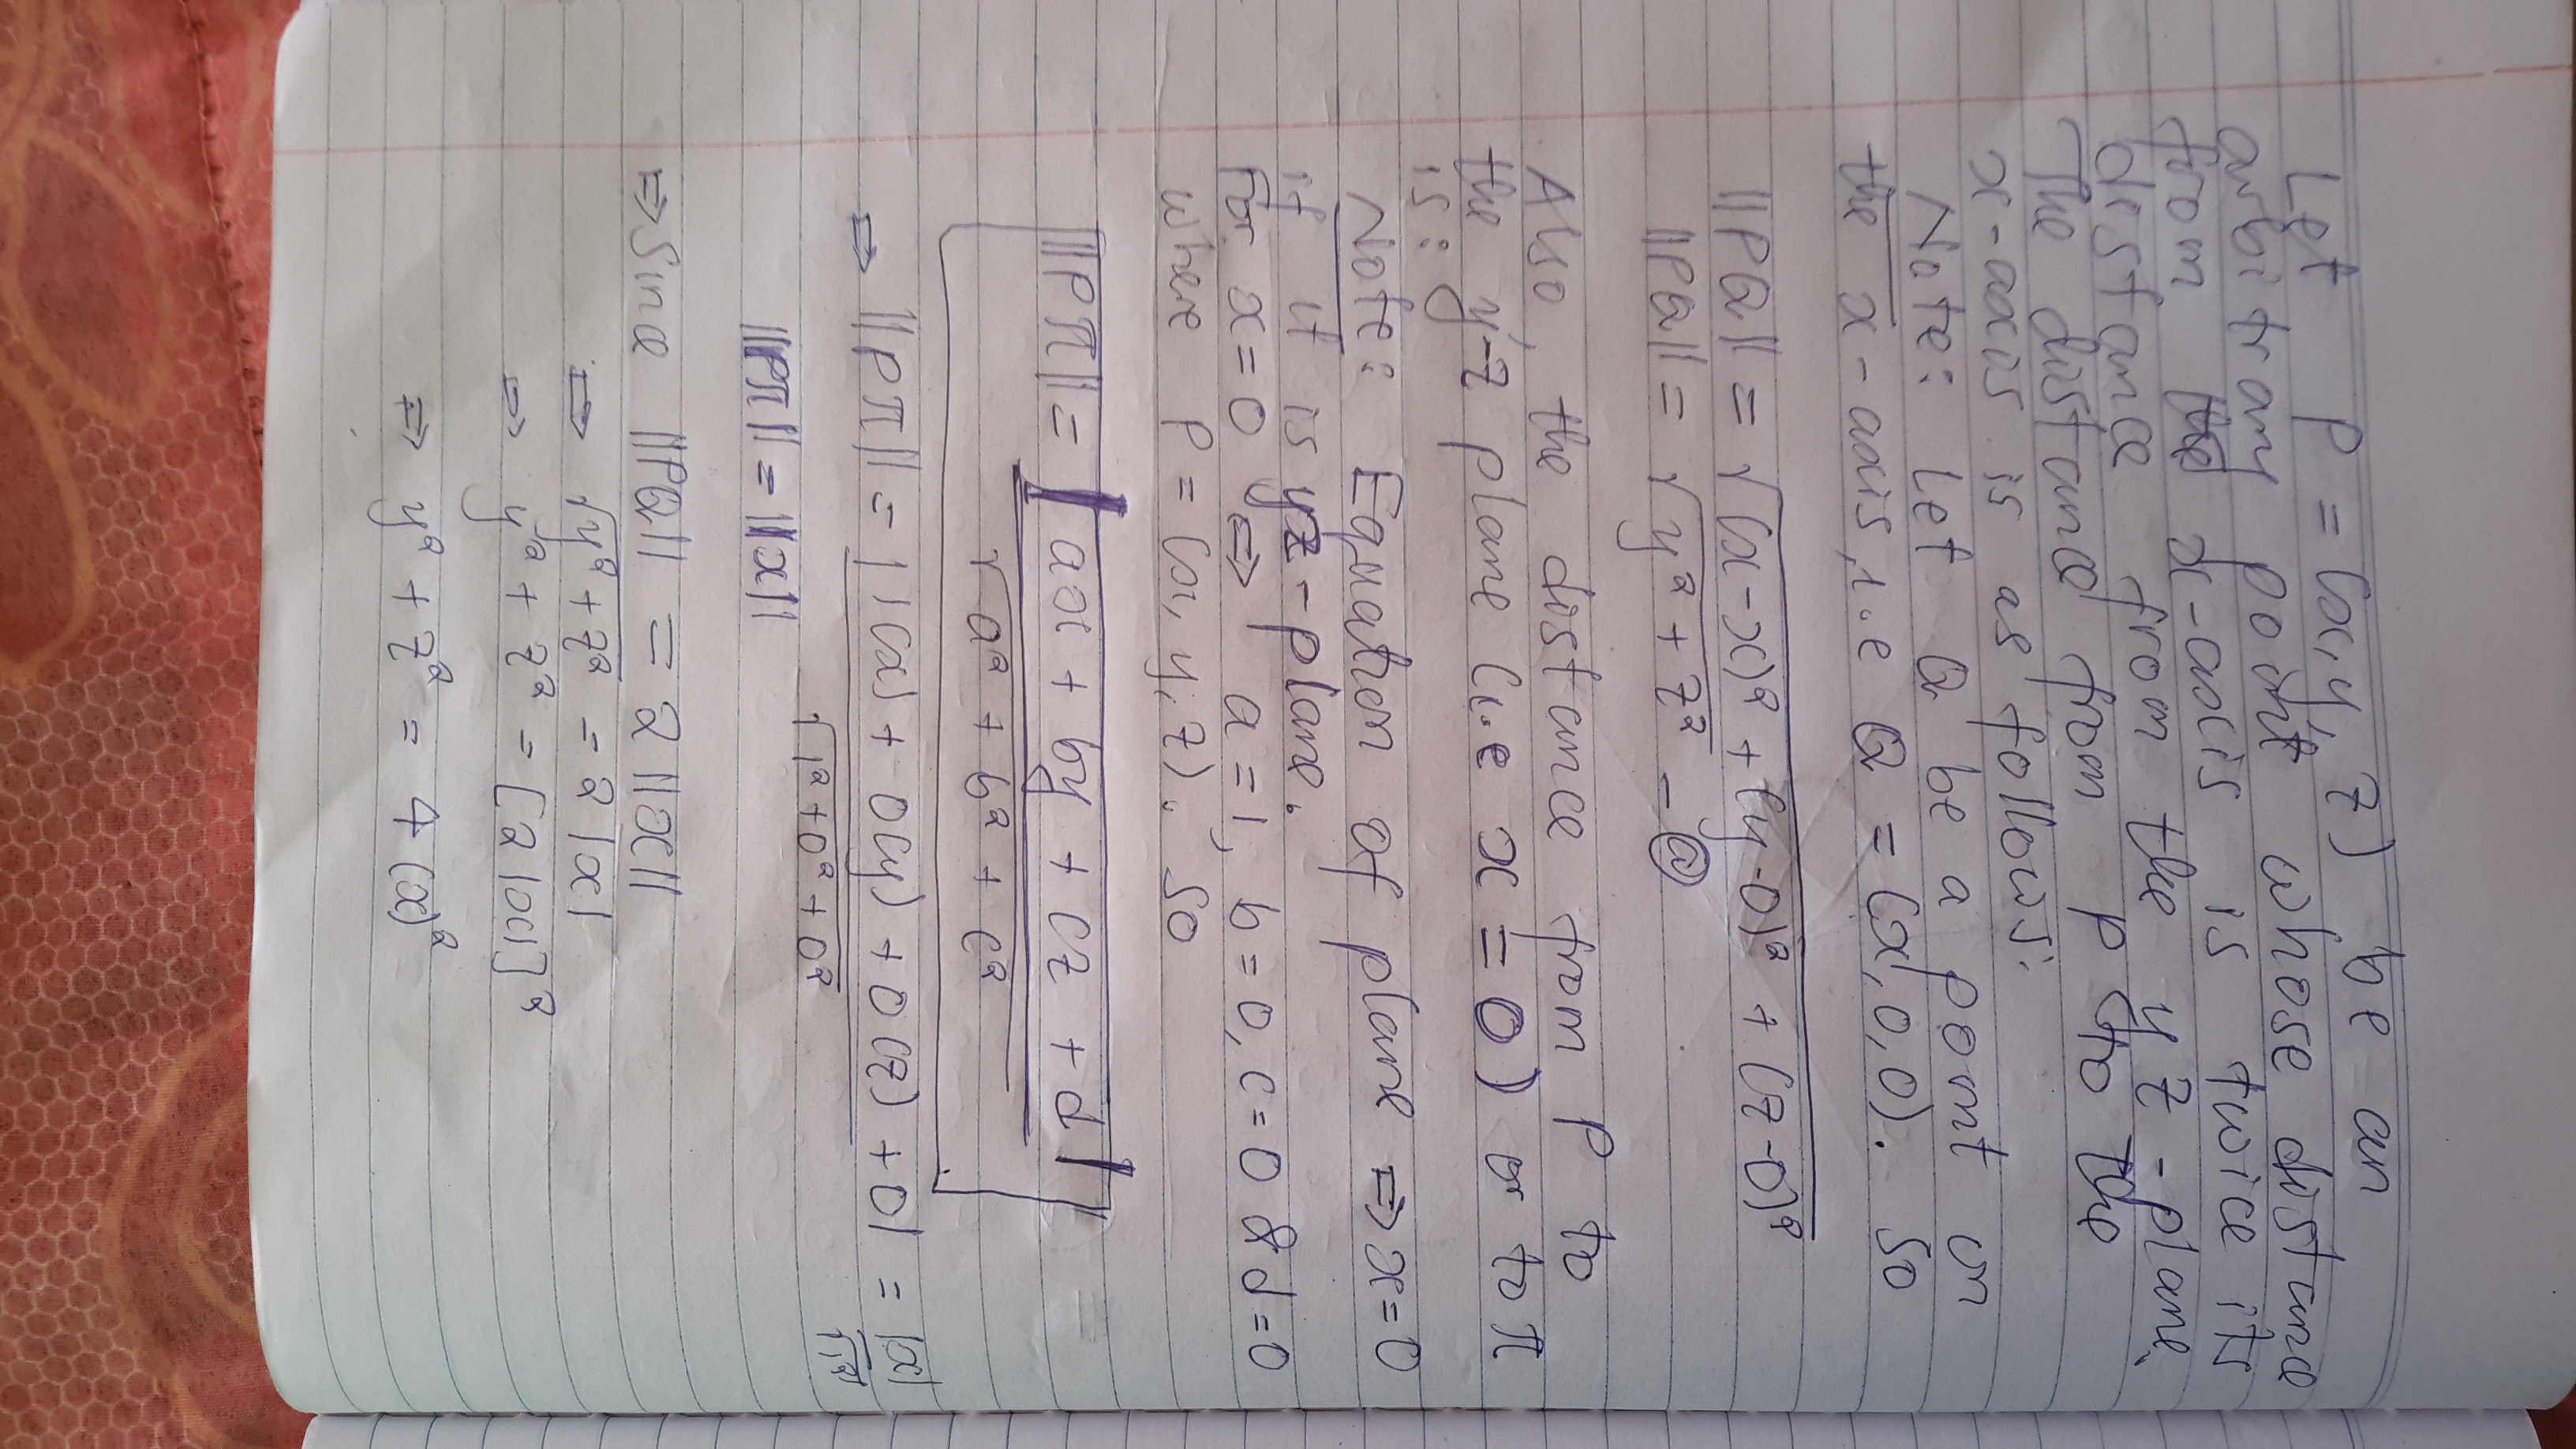 Let P = (x, y, z) be an
arbitrary point whose distance
from the x-axis is twice its
distance from the yz-plane.
The distance from P to the
x-axis is as follows:
Note: Let Q be a point on
the x-axis, i.e Q = (x, 0, 0). So
||PQ|| = √(x-x)² + (y-0)² + (z-0)²
||PQ|| = √y² + z² — ⓐ
Also, the distance from P to
the y-z plane (i.e x = 0) or to π
is:
Note: Equation of plane ⇒ x=0
if it is yz-plane.
For x=0 ⇒ a=1, b=0, c=0 & d=0
where P = (x, y, z). So
||Pπ|| = |ax + by + cz + d|
√a² + b² + c²
⇒ ||Pπ|| = |1(x) + 0(y) + 0(z) + 0| = |x|
√1² + 0² + 0² √1²
||Pπ|| = ||x||
⇒ Since ||PQ|| = 2||x||
⇒ √y² + z² = 2|x|
⇒ y² + z² = [2|x|]²
⇒ y² + z² = 4(x)²